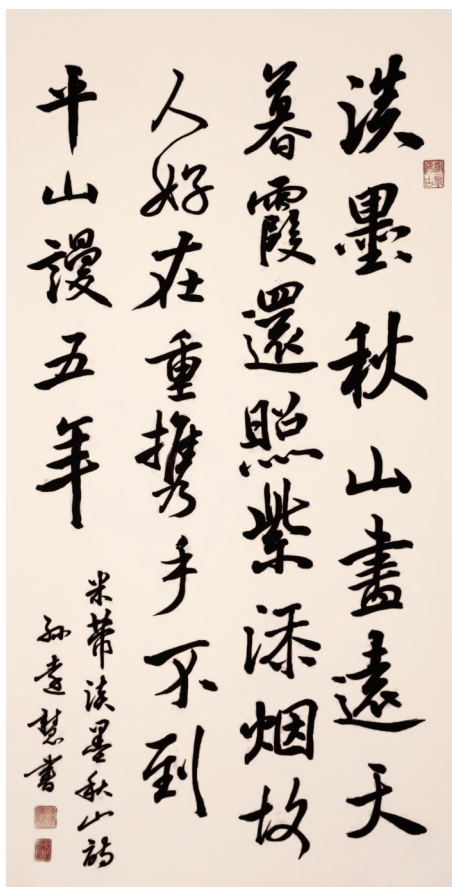 淡墨秋山盡遠天
暮霞還照紫添烟故
人好在重携手不到
平山謾五年
米芾淡墨秋山詩
孫慧書